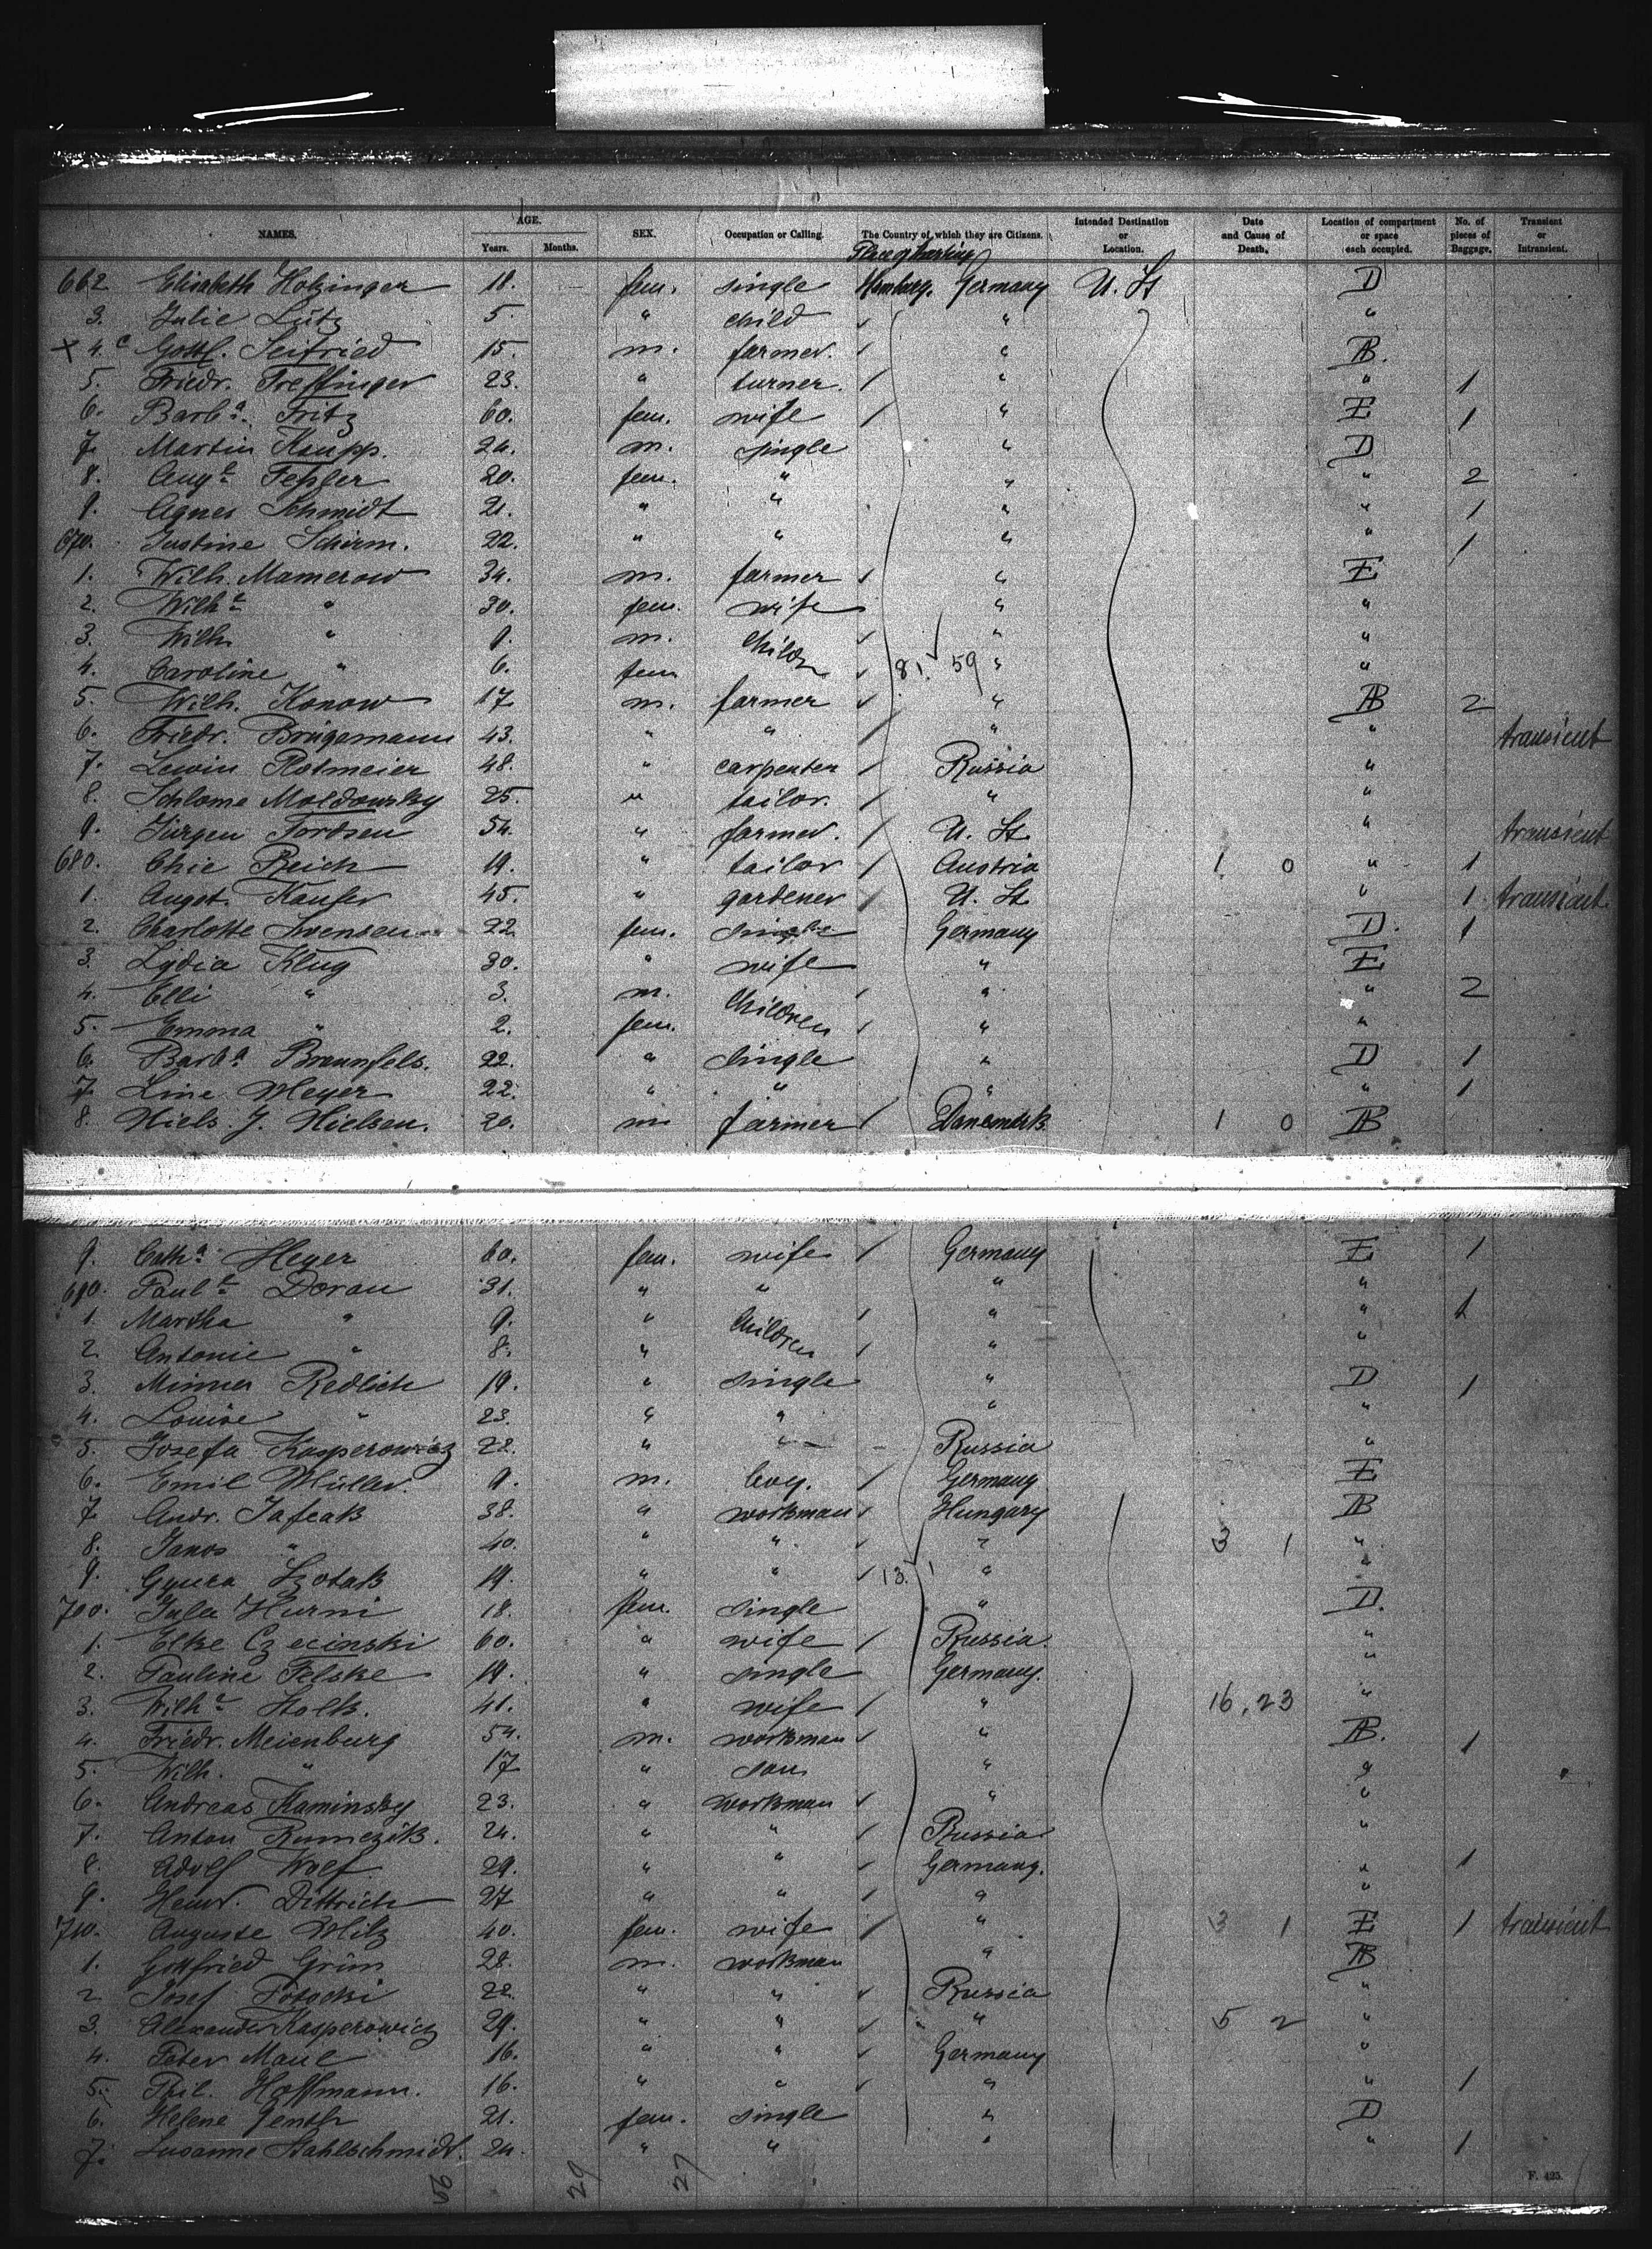 NAMES. AGE. Years. Months. SEX. Occupation or Calling. The Country of which they are Citizens. Intended Destination or Location. Date and Cause of Death. Location of compartment or space each occupied. No. of pieces of Baggage. Transient or Intransient.
662 Elisabeth Holzinger 18. fem. single Hamburg. Germany U. St D
3. Julie Lutz 5. " child " "
x 4. c Gottl. Seifried 15. m. farmer. " AB.
5. Friedr. Treffinger 23. " turner. " " 1
6. Barb.a Fritz 60. fem. wife " E 1
7. Martin Kaupp. 24. m. single " D
8. Aug.e Feßler 20. fem. " " " 2
9. Agnes Schmidt 21. " " " " 1
670. Justine Schirm. 22. " " " " 1
1. Wilh. Mamerow 34. m. farmer " E
2. Wilh.e " 30. fem. wife " "
3. Wilh. " 9. m. Childr " "
4. Caroline " 6. fem 81. 59 " "
5. Wilh. Konow 17. m. farmer " AB 2
6. Friedr. Brügemann 43. " " " " transient
7. Lewin Rotmeier 48. " carpenter Russia "
8. Schlome Moldowsky 25. " tailor. " "
9. Jürgen Tordsen 54. " farmer. U. St. " transient
680. Chie Reich 19. " tailor Austria 1 0 " 1
1. Augst. Kaufer 45. " gardener U. St. " 1 transient
2. Charlotte Svensen 22 fem. single Germany D. 1
3. Lydia Klug 30. " wife " E
4. Elli " 3. m. Children " " 2
5. Emma " 2. fem. " "
6. Barb.a Braunfels. 22. " single " D 1
7. Line Meyer 22. " " " " 1
8. Niels J. Nielsen. 20. m. farmer Danemark 1 0 AB
9. Cath.a Heyer 60. fem. wife Germany E 1
690. Paul.e Dorau 31. " " " "
1. Martha " 9. " Children " " 1
2. Antonie " 8. " " "
3. Minna Redlich 19. " single " D 1
4. Louise " 23. " " " "
5. Josefa Kasperowicz 22. " " Russia "
6. Emil Müller. 9. m. boy. Germany E
7. Andr. Jafcak 38. " workman Hungary AB
8. Janos " 40. " " " 3 1 "
9. Gyura 19. " " 13. 1 " "
700. Jula Hurni 18. fem. single " D.
1. Elke Czecinski 60. " wife Russia. "
2. Pauline Felske 19. " single Germany. "
3. Wilh.e Holk. 41. " wife " 16, 23 "
4. Friedr. Meienburg 54. m. workman " AB. 1
5. Wilh. " 17 " son " "
6. Andreas Kaminsky 23. " workman " "
7. Anton Rumczik. 24. " " Russia "
8. Adolf Wolf 29. " " Germany. " 1
9. Heinr. Dittrich 27 " " " "
710. Auguste Milz 40. fem. wife " 3 1 E 1 transient
1. Gottfried Grün 28. m. workman " AB
2 Josef Potocki 22. " " Russia "
3. Alexander Kasperowicz 29. " " " 5 2 "
4. Peter Maul 16. " " Germany "
5. Phil. Hoffmann. 16. " " " " 1
6. Helene Genth 21. fem. single " D
7. Susanne Stahlschmidt. 24. " " " " 1
56 29 27
F. 425.